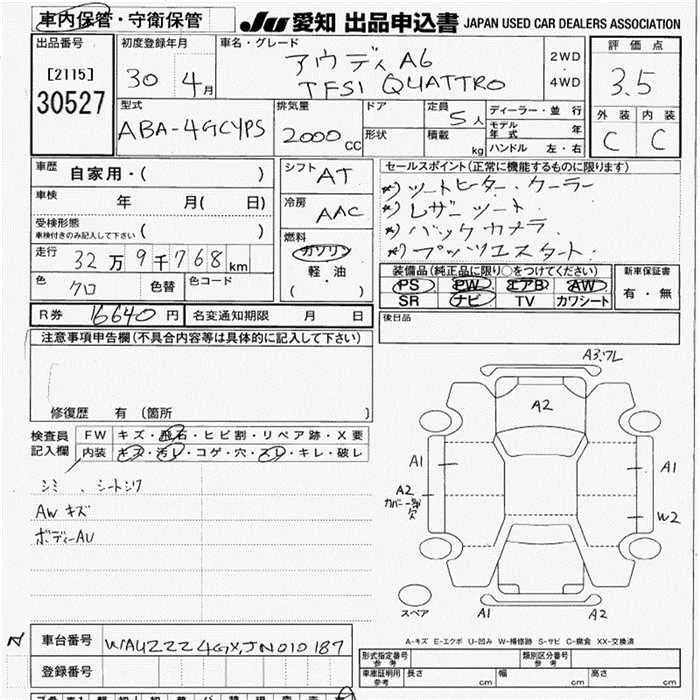 車内保管・守衛保管
JU 愛知 出品申込書 JAPAN USED CAR DEALERS ASSOCIATION
出品番号
[2115]
30527
初度登録年月
30 4月
車名・グレード
アウディ A6
TFSI QUATTRO
2WD
4WD
評価点
3.5
外装 内装
C C
型式
ABA-4GCYPS
排気量
2000cc
ドア
形状
定員
5人
積載
kg
ディーラー・並行
モデル年式 年
ハンドル 左・右
車歴
自家用・( )
車検
年 月( 日)
受検形態
車検付きのみ記入して下さい ( )
走行
32万9千768km
色
クロ
色替
色コード
シフト
AT
冷房
AAC
燃料
ガソリン
軽・油
( )
セールスポイント(正常に機能するものに限ります)
*)シートヒーター・クーラー
*)レザーシート.
*)バックカメラ.
*)プッシュスタート.
装備品(純正品に限り○をつけてください)
PS PW エアB AW
SR ナビ TV カワシート
新車保証書
有・無
R券 16640円
名変通知期限 月 日
後日品
注意事項申告欄(不具合内容等は具体的に記入して下さい)
修復歴 有 (箇所 )
検査員記入欄
FW キズ・飛石・ヒビ割・リペア跡・X要
内装 キズ・汚レ・コゲ・穴・スレ・キレ・破レ
シミ、シートシワ
AWキズ
ボディーAU
A3.ワレ
A2
A1
A1
A2
カバー一部欠
W2
スペア
A1
A2
A-キズ E-エクボ U-凹み W-補修跡 S-サビ C-腐食 XX-交換済
車台番号
WAUZZZ4GXJN010187
登録番号
形式指定番号
参考
類別区分番号
参考
車庫証明用
参考
長さ cm
幅 cm
高さ cm